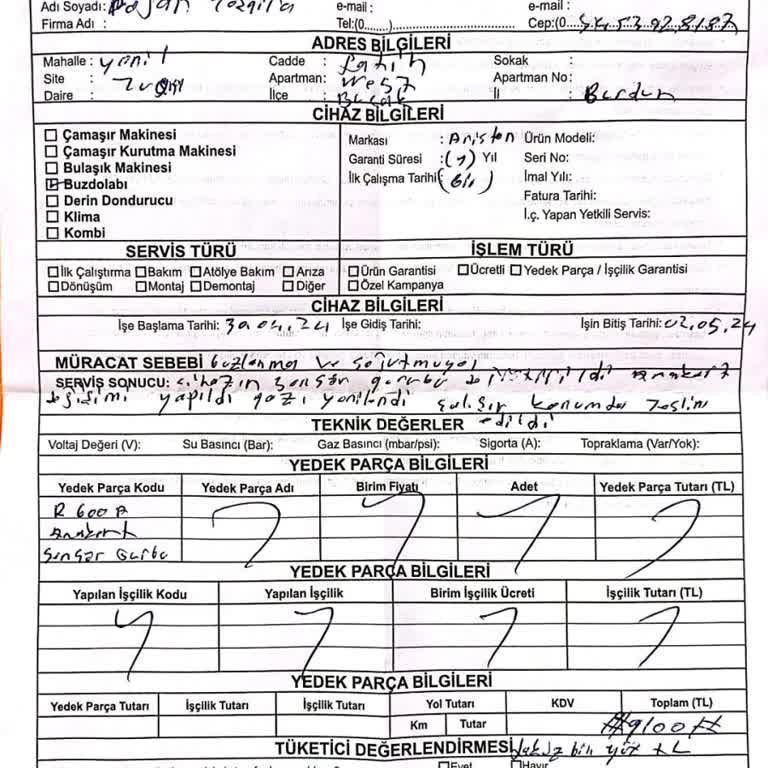 Adı Soyadı: e-mail : e-mail :
Firma Adı : Tel:(0........) Cep:(0....
ADRES BİLGİLERİ
Mahalle : yeni Cadde : Fatih Sokak :
Site : Apartman: Apartman No:
Daire : İlçe : Bucak İl : Burdur
CİHAZ BİLGİLERİ
Çamaşır Makinesi
Çamaşır Kurutma Makinesi
Bulaşık Makinesi
Buzdolabı
Derin Dondurucu
Klima
Kombi
Markası : Ariston Ürün Modeli:
Garanti Süresi :(1) Yıl Seri No:
İlk Çalışma Tarihi (Bir) İmal Yılı:
Fatura Tarihi:
İ.ç. Yapan Yetkili Servis:
SERVİS TÜRÜ İŞLEM TÜRÜ
İlk Çalıştırma Bakım Atölye Bakım Arıza Ürün Garantisi Ücretli Yedek Parça / İşçilik Garantisi
Dönüşüm Montaj Demontaj Diğer Özel Kampanya
CİHAZ BİLGİLERİ
İşe Başlama Tarihi: 30.04.24 İşe Gidiş Tarihi: İşin Bitiş Tarihi: 02.05.24
MÜRACAT SEBEBİ buzlanma ve soğutmuyor
SERVİS SONUCU: cihazın sensör gurubu değiştirildi anakart
değişimi yapıldı gazı yenilendi çalışır konumda teslim
TEKNİK DEĞERLER edildi
Voltaj Değeri (V): Su Basıncı (Bar): Gaz Basıncı (mbar/psi): Sigorta (A): Topraklama (Var/Yok):
YEDEK PARÇA BİLGİLERİ
Yedek Parça Kodu Yedek Parça Adı Birim Fiyatı Adet Yedek Parça Tutarı (TL)
R 600 A
Anakart
Sensör Gurbu
YEDEK PARÇA BİLGİLERİ
Yapılan İşçilik Kodu Yapılan İşçilik Birim İşçilik Ücreti İşçilik Tutarı (TL)
YEDEK PARÇA BİLGİLERİ
Yedek Parça Tutarı İşçilik Tutarı İşçilik Tutarı Yol Tutarı KDV Toplam (TL)
Km Tutar #9100#
TÜKETİCİ DEĞERLENDİRMESİ dokuz bin yüz TL
Evet Hayır